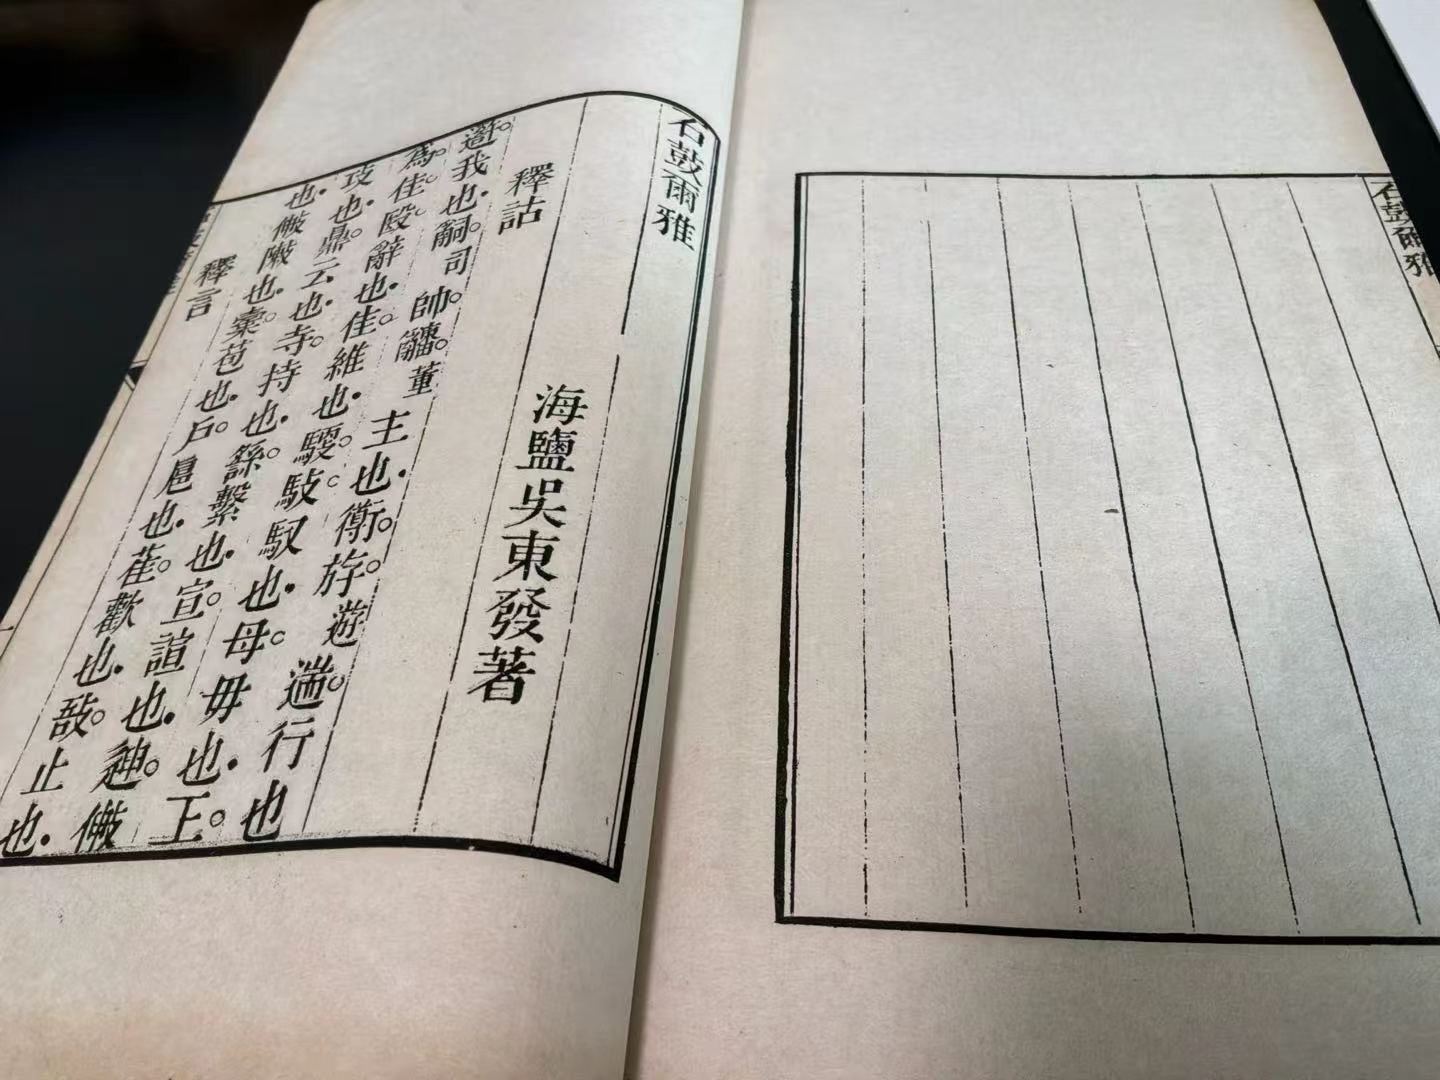 石鼓爾雅
石鼓爾雅
海鹽吳東發著
釋詁
我也嗣司帥董主也衛斿遊遄行也
為隹殹辭也隹維也馭也母毋也丅
也鼎云也寺持也繫也宣諠也
也也橐苞也戶也萑歡也止也
釋言